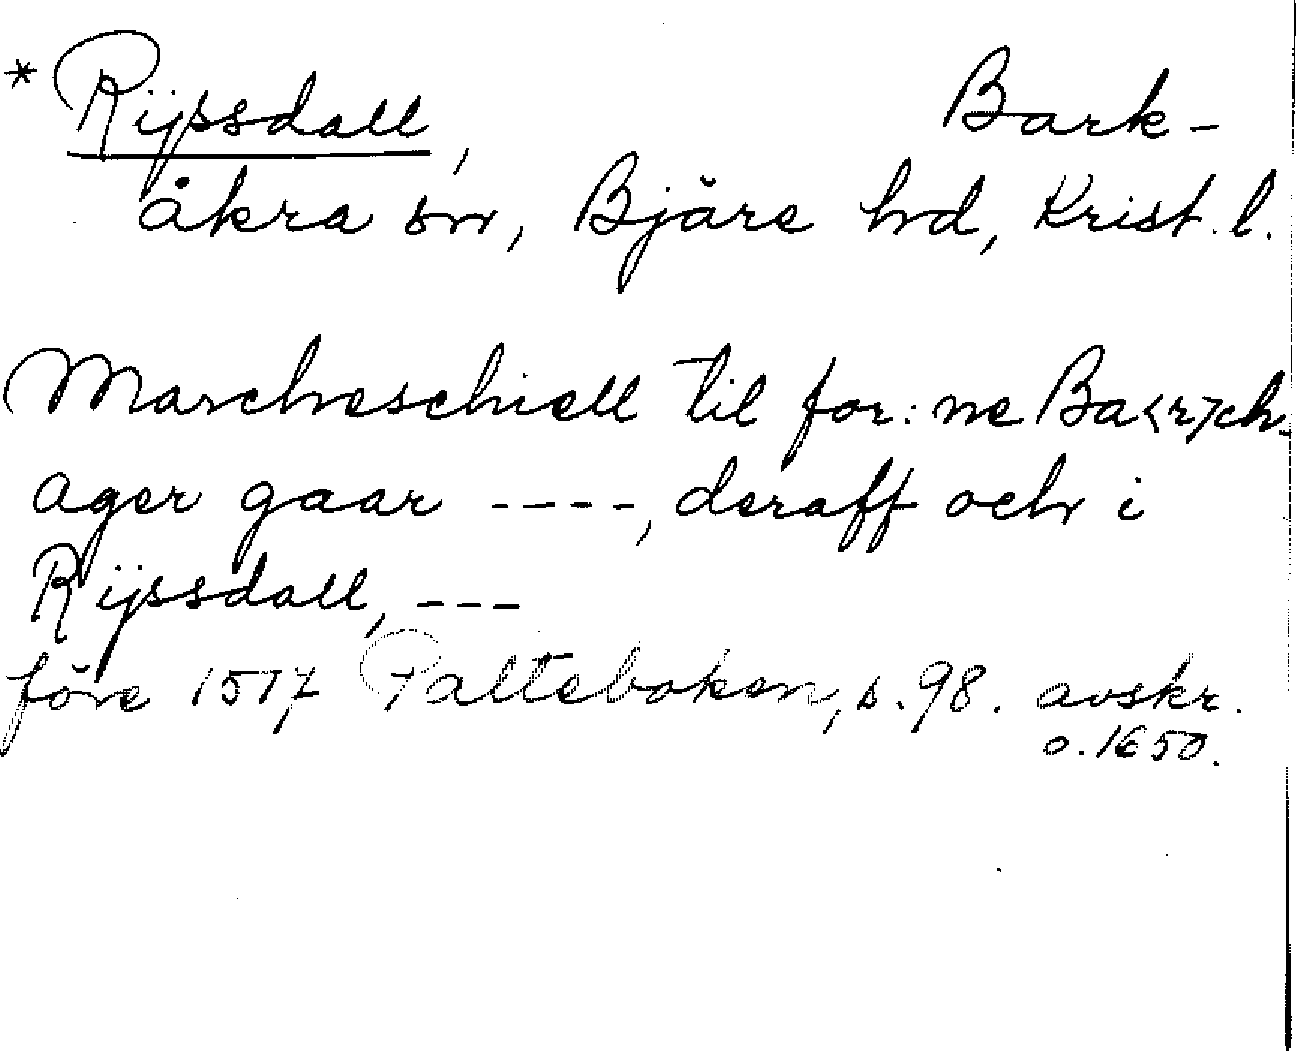 * Rijssdall, Bark-
åkra sn, Bjäre hd, Krist. l.
Marcheschiell til for: ne Ba<r>ch-
ager gaar ----, deraff och i
Rijssdall, ---
före 1517 Palteboken, s. 98. avskr.
o. 1650.